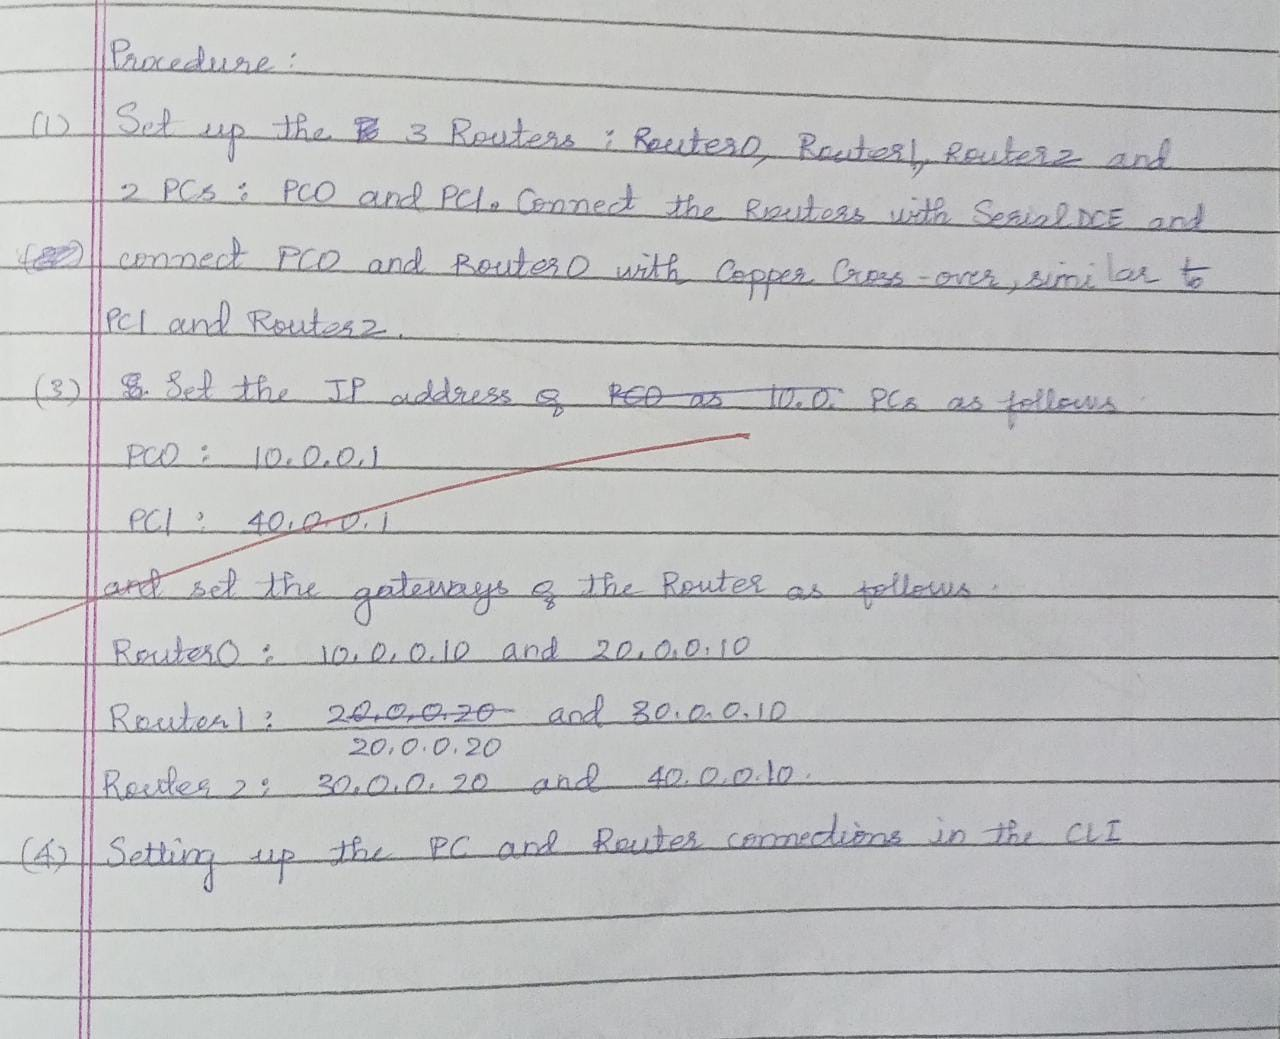 Procedure:
(1) Set up the 3 Routers : Router0, Router1, Router2 and
2 PCs : PC0 and PC1. Connect the Routers with Serial DCE and
connect PC0 and Router0 with Copper Cross-over, similar to
PC1 and Router2.
(3) Set the IP address of PC0 as 10.0. PCs as follows
PC0 : 10.0.0.1
PC1 : 40.0.0.1
and set the gateways of the Router as follows.
Router0 : 10.0.0.10 and 20.0.0.10
Router1 : 20.0.0.20 and 30.0.0.10
20.0.0.20
Router 2 : 30.0.0.20 and 40.0.0.10.
(4) Setting up the PC and Router connections in the CLI